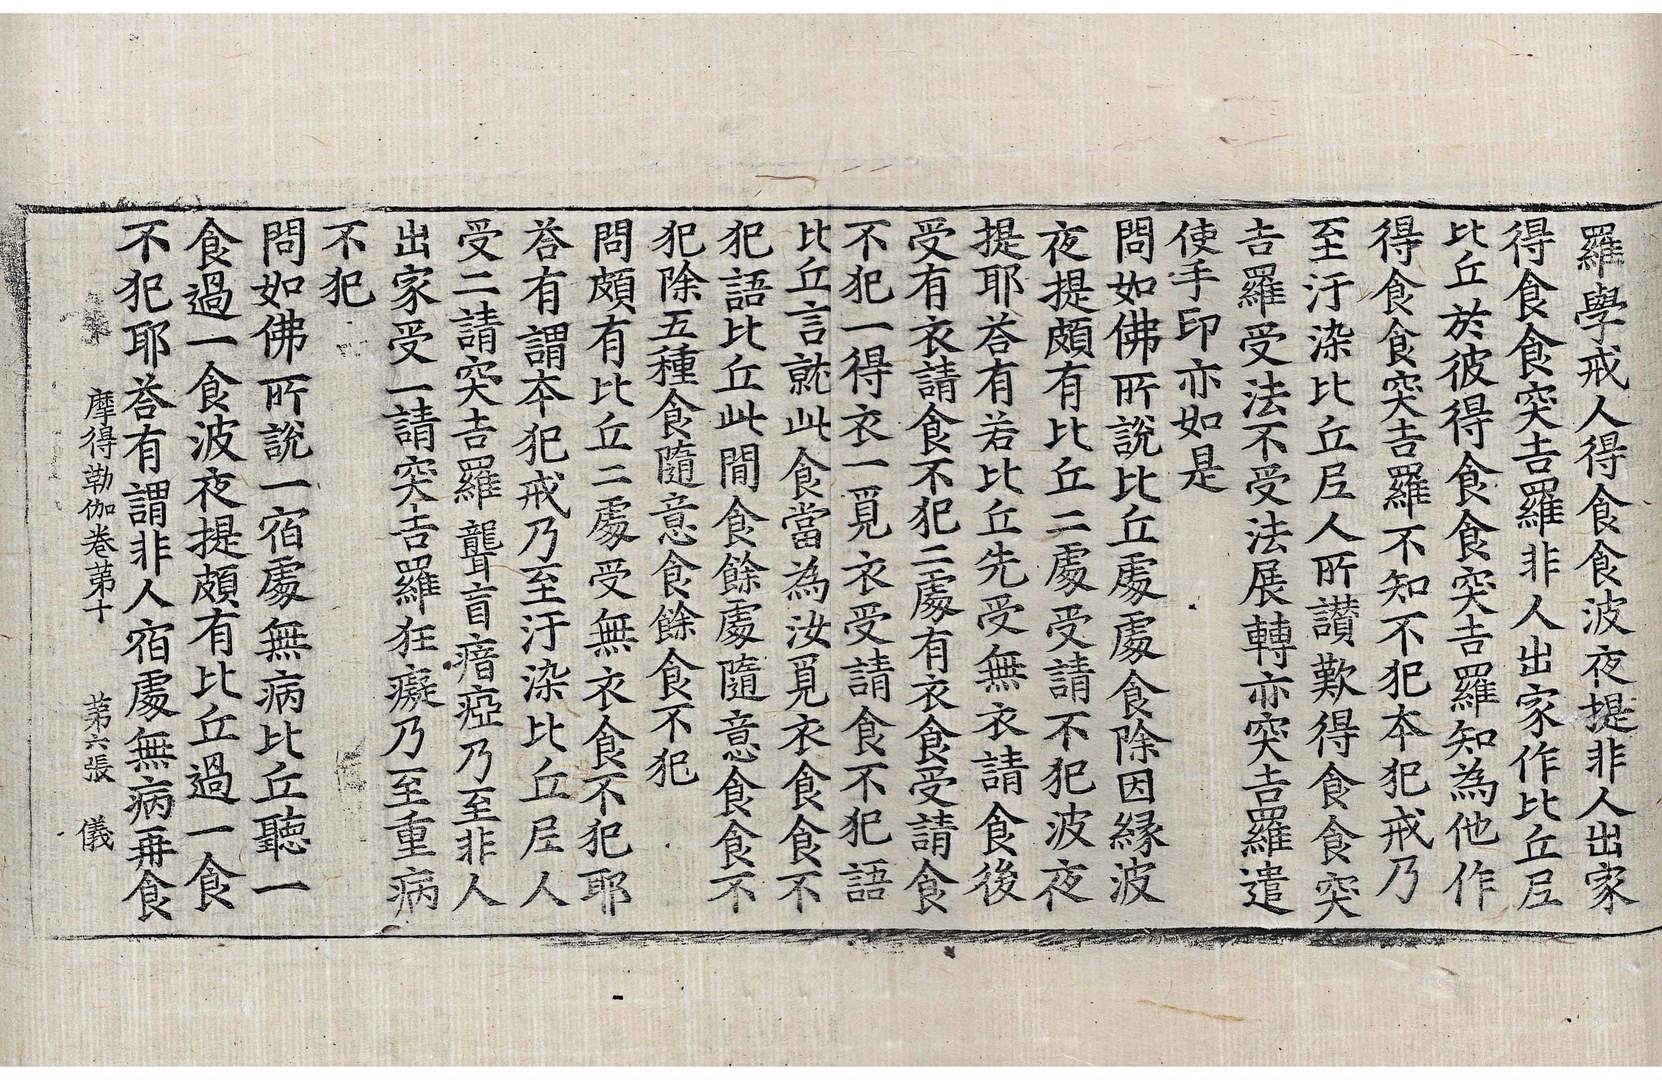 羅學戒人得食食波夜提非人出家
得食食突吉羅非人出家作比丘尼
比丘於彼得食食突吉羅知為他作
得食食突吉羅不知不犯本犯戒乃
至汙染比丘尼人所讃歎得食食突
吉羅受法不受法展轉亦突吉羅遣
使手印亦如是
問如佛所說比丘處處食除因縁波
夜提頗有比丘二處受請不犯波夜
提耶荅有若比丘先受無衣請食後
受有衣請食不犯二處有衣食受請食
不犯一得衣一覓衣受請食不犯語
比丘言就此食當為汝覓衣食食不
犯語比丘此間食餘處隨意食食不
犯除五種食隨意食餘食不犯
問頗有比丘二處受無衣食不犯耶
荅有謂本犯戒乃至汙染比丘尼人
受二請突吉羅聾盲瘖瘂乃至非人
出家受一請突吉羅狂癡乃至重病
不犯
問如佛所說一宿處無病比丘聽一
食過一食波夜提頗有比丘過一食
不犯耶荅有謂非人宿處無病再食
摩得勒伽卷苐十 苐六張 儀